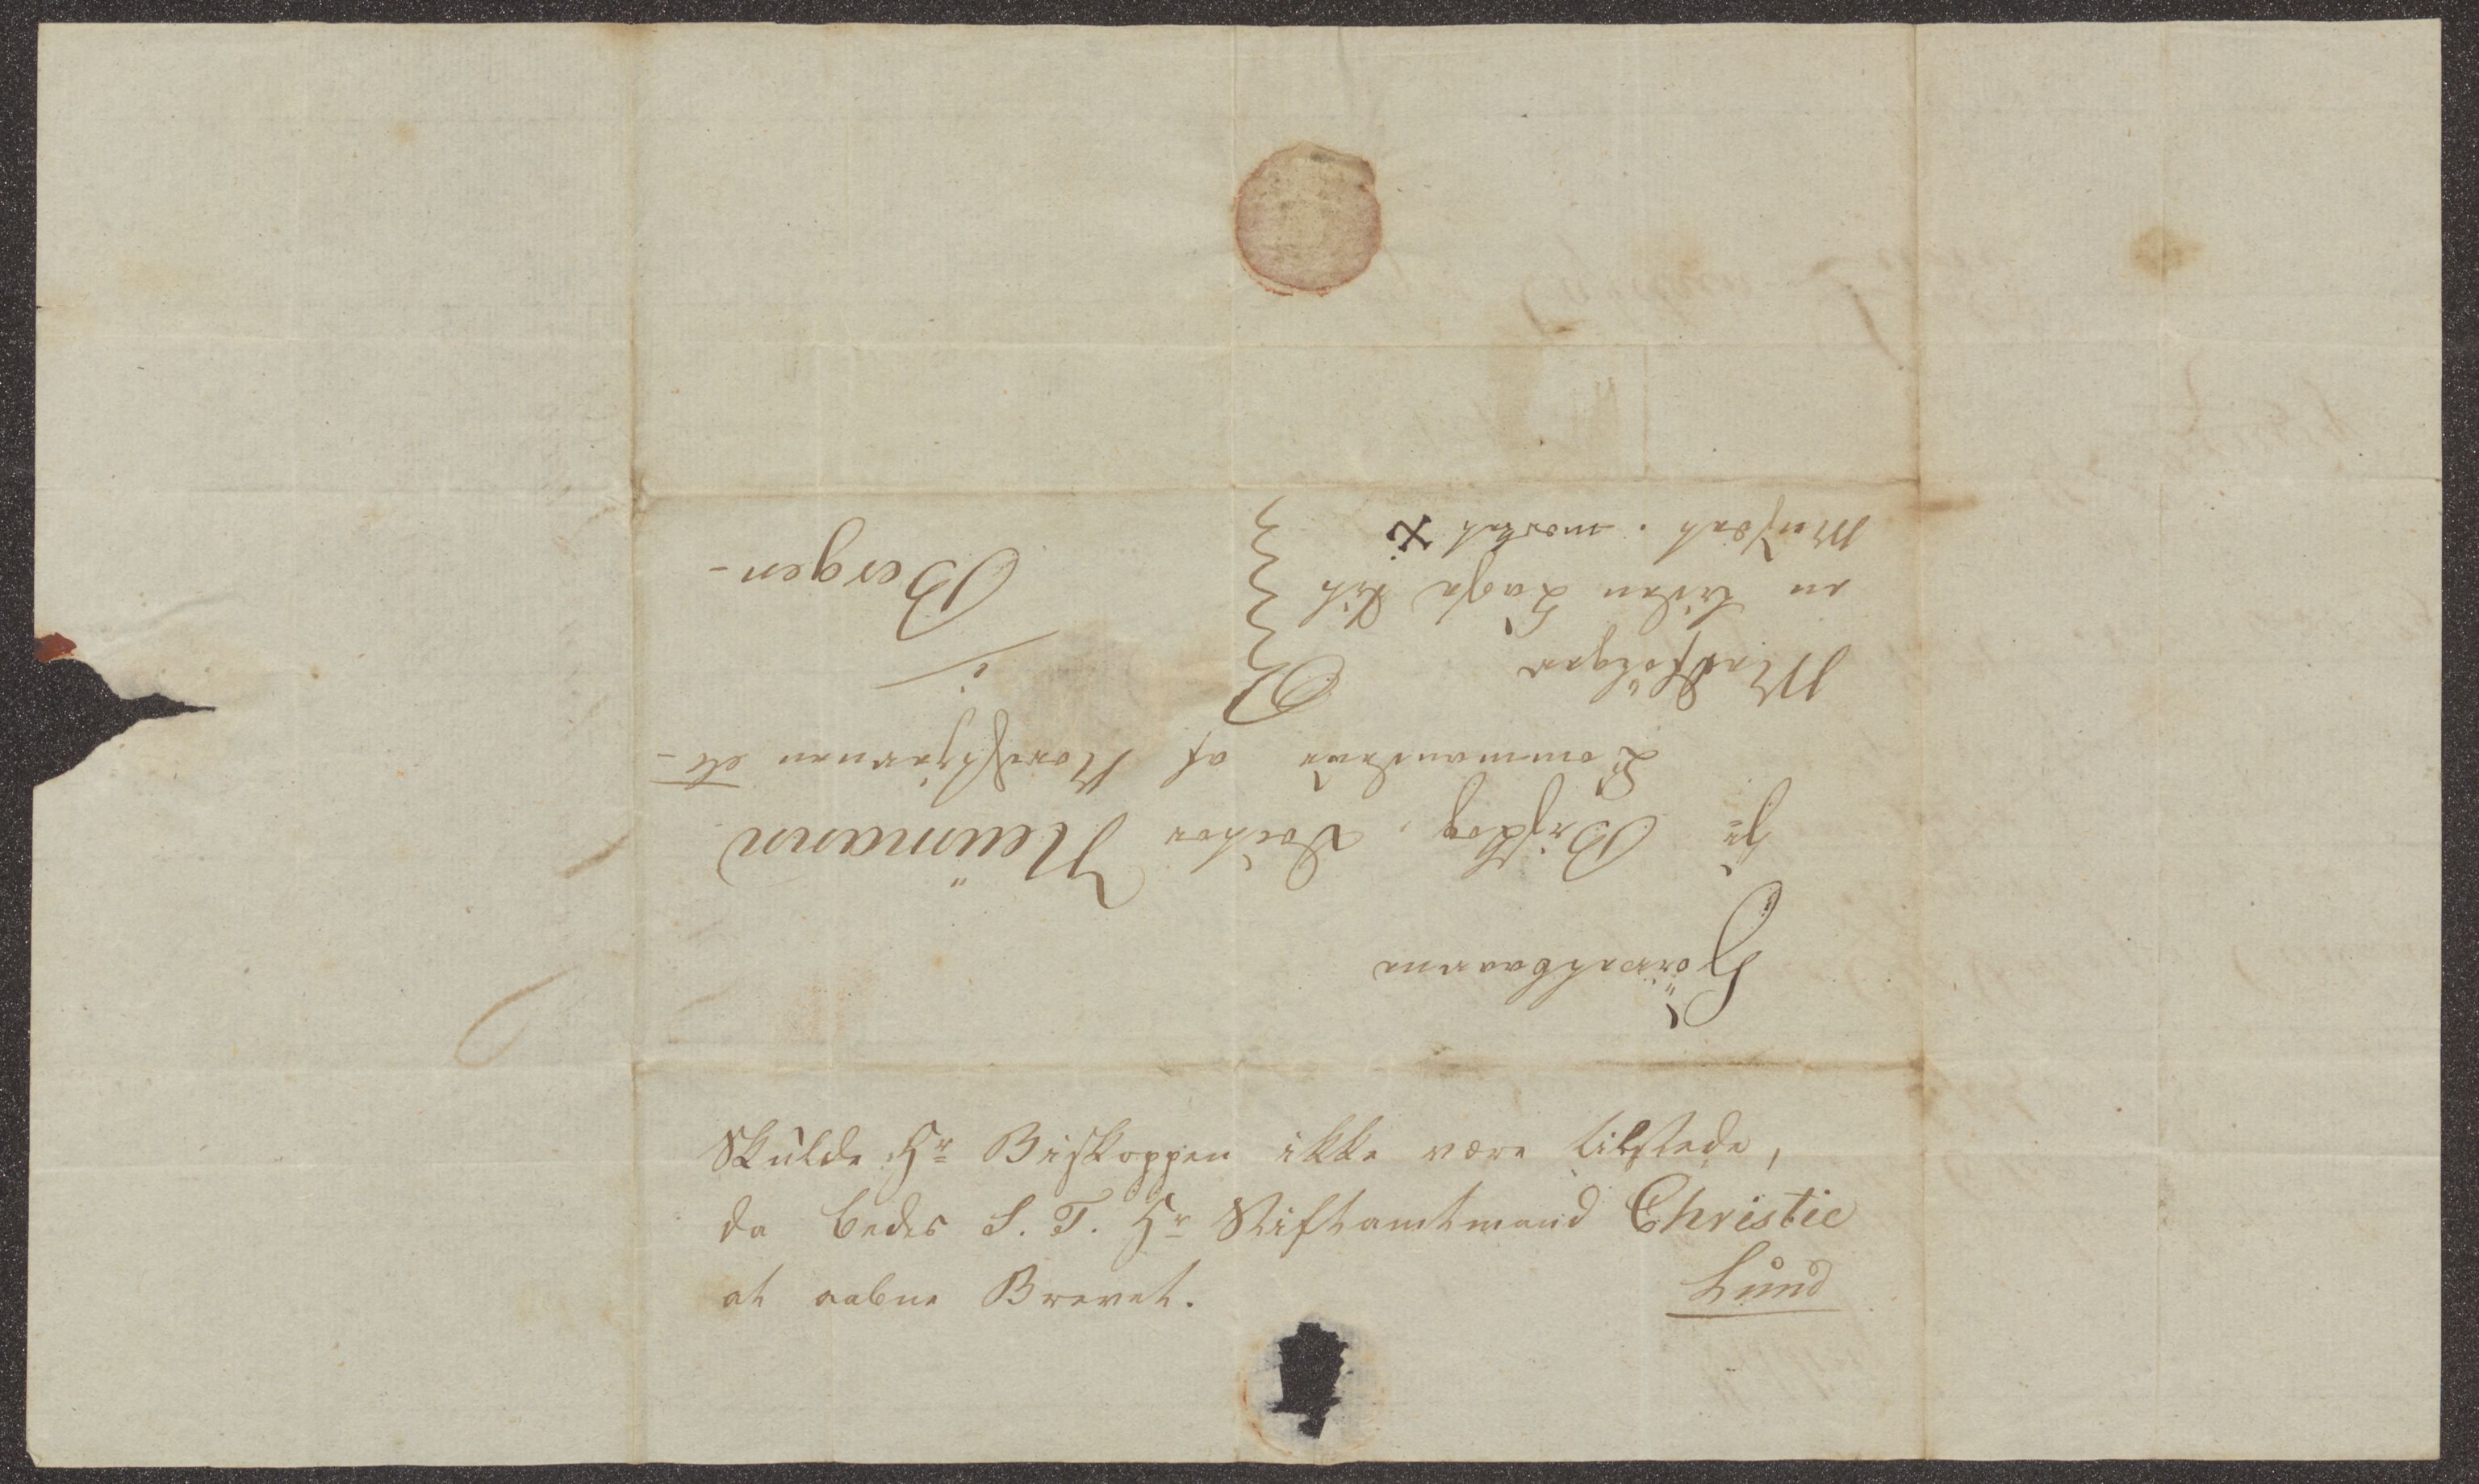 Høivelbaarne
Hr Biskop, Doctor Neumann
Commandeur af Nordstjernen etc
i
Bergen-
Medfølger
en liden Kasse til
Museet. mærket X
Skulde Hr Biskoppen ikke være tilstede,
da bedes S. T. Hr Stiftamtmand Christie
at aabne Brevet.
Lund